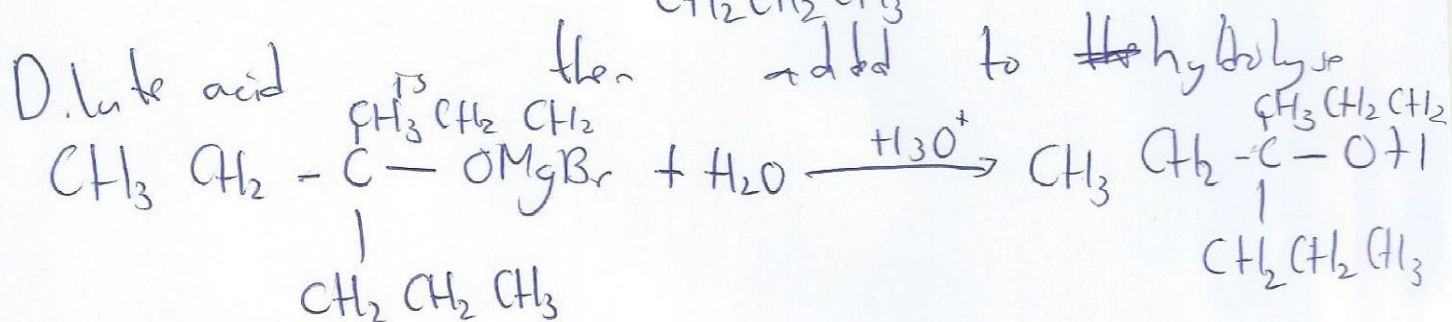 CH2CH2CH3
Dilute acid is then added to hydrolyse
CH3 CH2 CH2 CH3 CH2 CH2
CH3 CH2 - C — OMgBr + H2O H3O+ → CH3 CH2 - C — OH
CH2 CH2 CH3 CH2 CH2 CH3